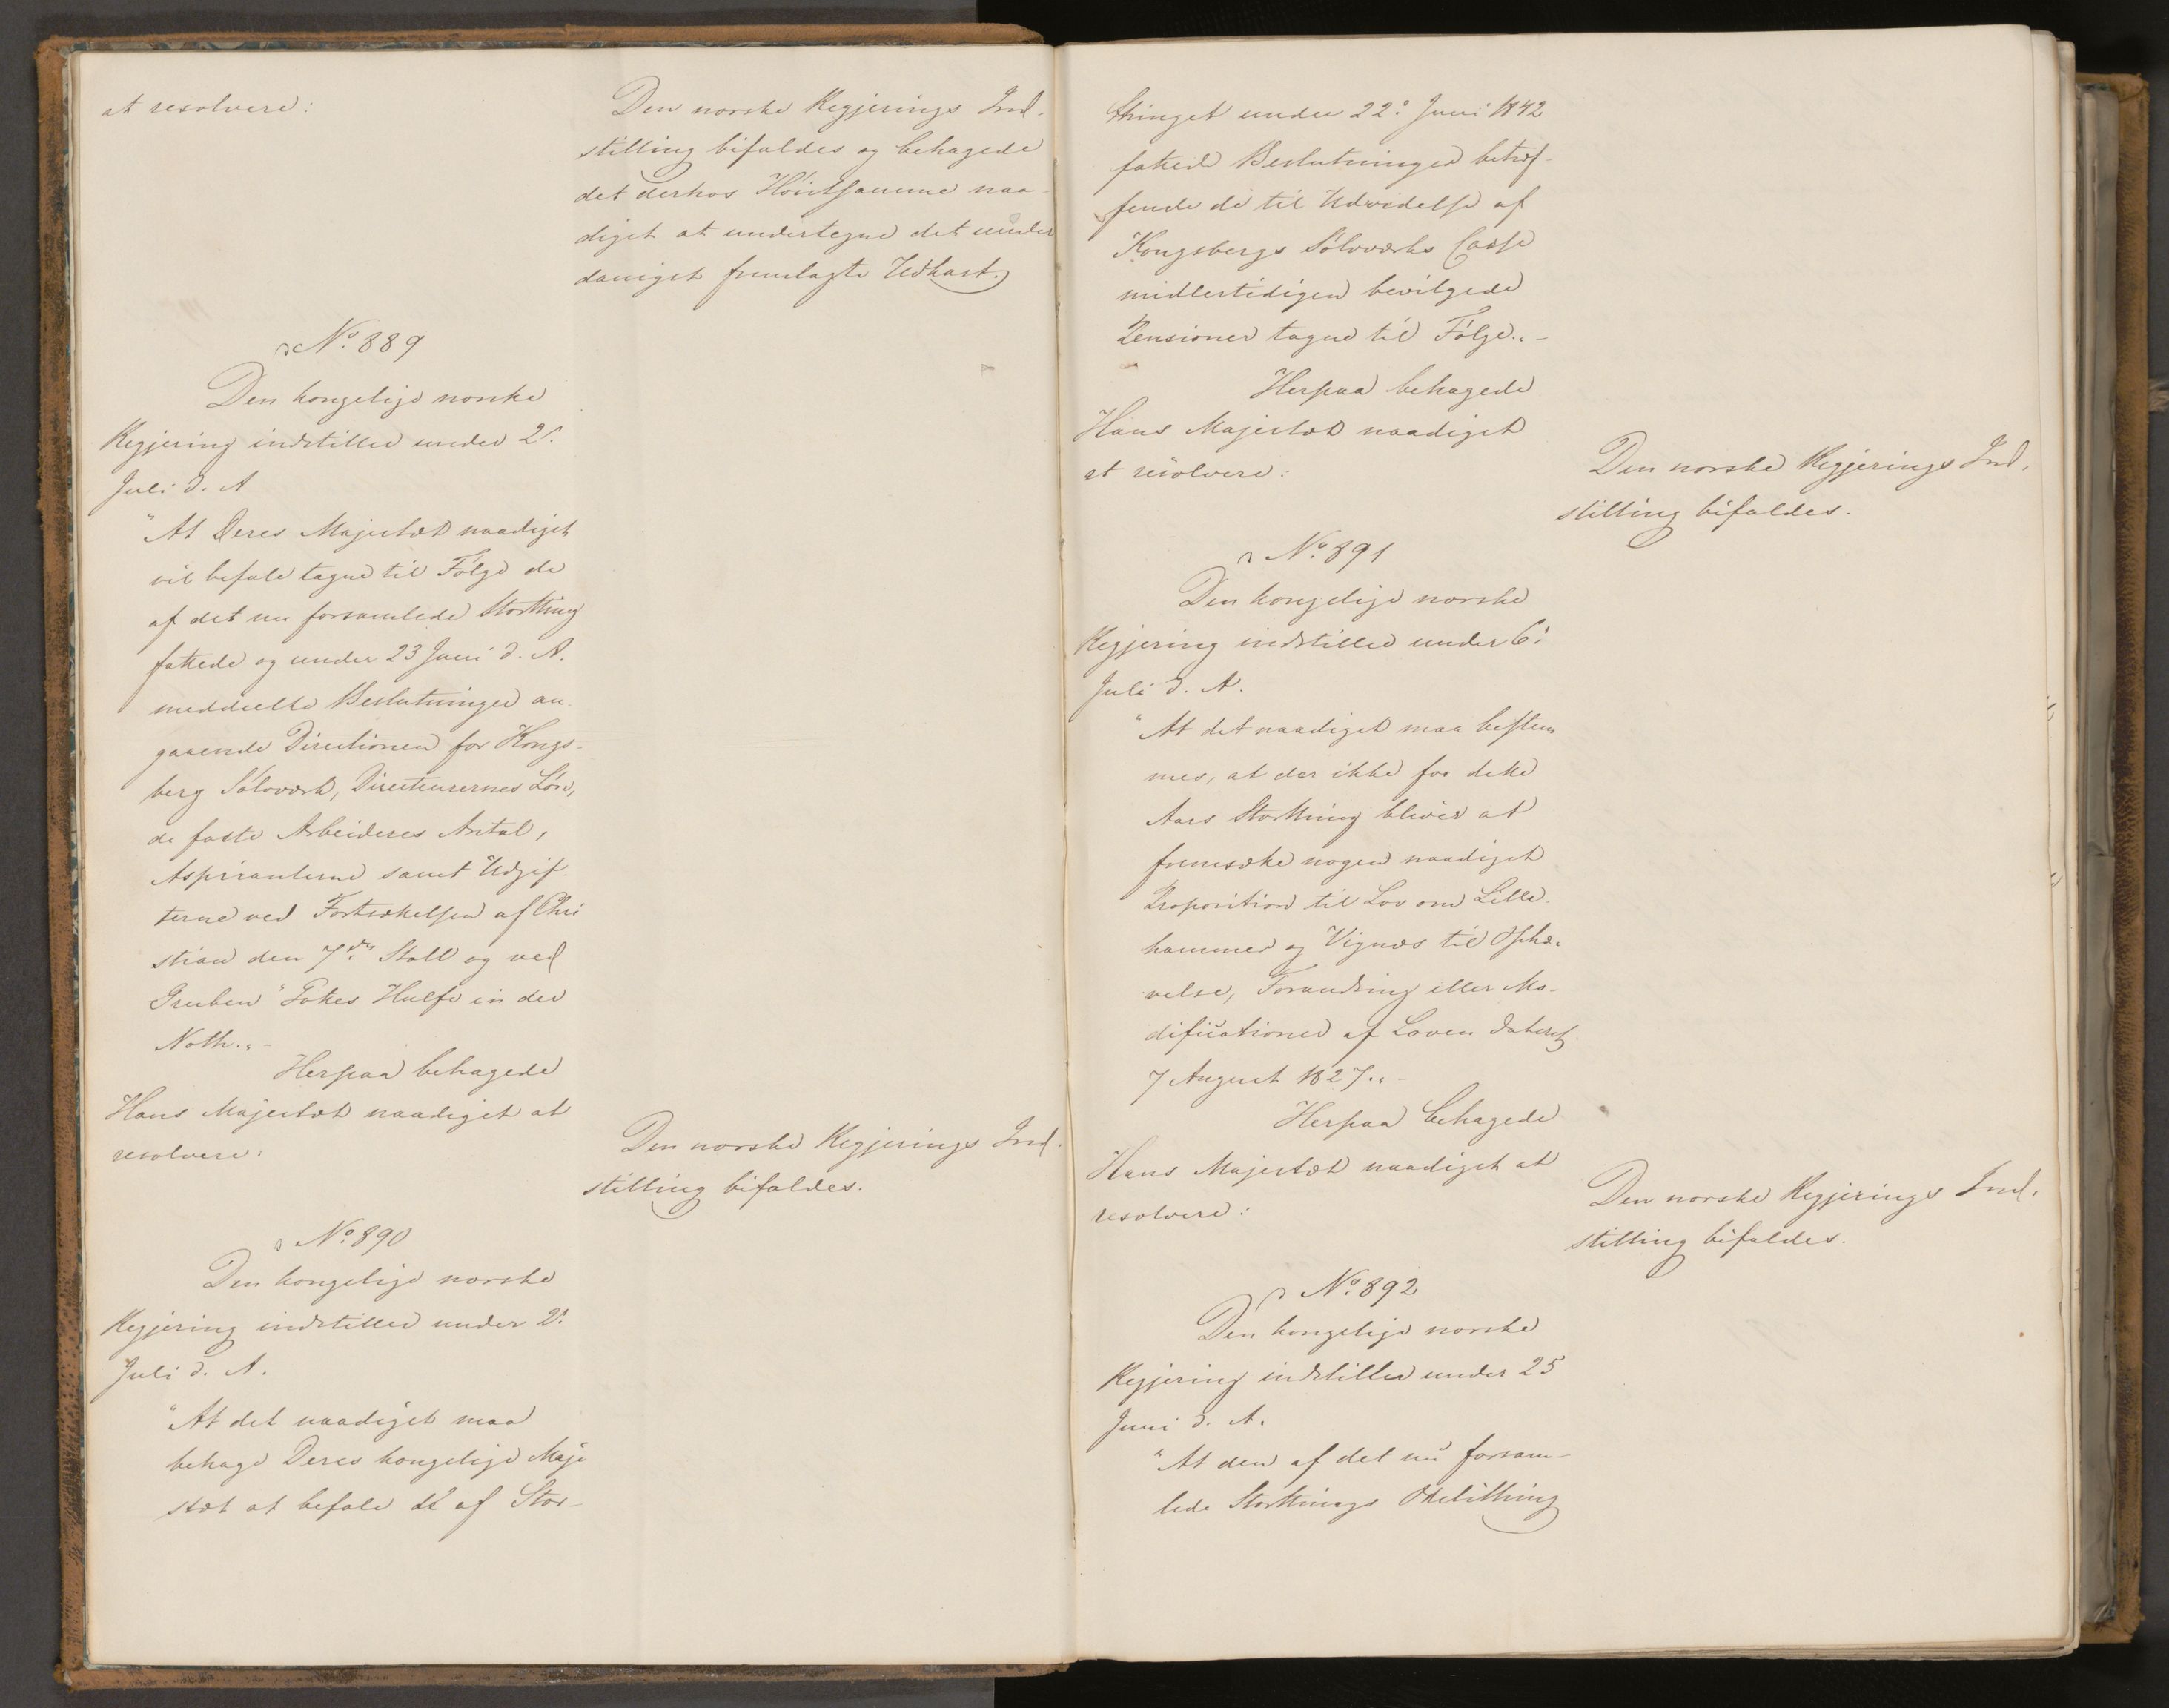 at resolvere:
Den norske Regjerings Ind-
stilling bifaldes og behagede
det derhos Høistsamme naa-
digst at undertegne det under
danigst fremlagte Udkast.
No. 889
Den kongelige norske
Regjering indstiller under 2.
Juli d. A
"At Deres Majestæt naadigst
vil befale tagne til Følge de
af det nu forsamlede Storthing
fattede og under 23 Juni d. A.
meddeelte Beslutninger an-
gaaende Directionen for Kongs-
berg Sølvværk, Directeurernes Løn,
de faste Arbeideres Antal,
Aspiranterne samt Udgif-
terne ved Fortsættelsen af Chri
stian den 7des Stoll og ved
Gruben "Gottes Hulfe in der
Noth." -
Herpaa behagede
Hans Majestæt naadigst at
resolvere:
Den norske Regjerings Ind-
stilling bifaldes.
No. 890
Den kongelige norske
Regjering indstiller under 2.
Juli d. A.
"At det naadigst maa
behage Deres kongelige Maje
stæt at befale de af Stor-
thinget under 22. Juni 1842
fattede Beslutninger betræf-
fende de til Udvidelse af
Kongsbergs Sølvværks Casse
midlertidigen bevilgede
Pensioner tagne til Følge." -
Herpaa behagede
Hans Majestæt naadigst
at resolvere:
Den norske Regjerings Ind-
stilling bifaldes.
No. 891
Den kongelige norske
Regjering indstiller under 6.
Juli d. A.
"At det naadigst maa bestem
mes, at der ikke for dette
Aars Storthing bliver at
fremsætte nogen naadigst
Proposition til Lov om Lille-
hammer og Vignæs til Ophæ-
velse, Forandring eller Mo-
dificationer af Loven dateret
7 August 1827." -
Herpaa behagede
Hans Majestæt naadigst at
resolvere:
Den norske Regjerings Ind-
stilling bifaldes.
No. 892
Den kongelige norske
Regjering indstiller under 25
Juni d. A.
"At den af det nu forsam-
lede Storthings Odelsthing